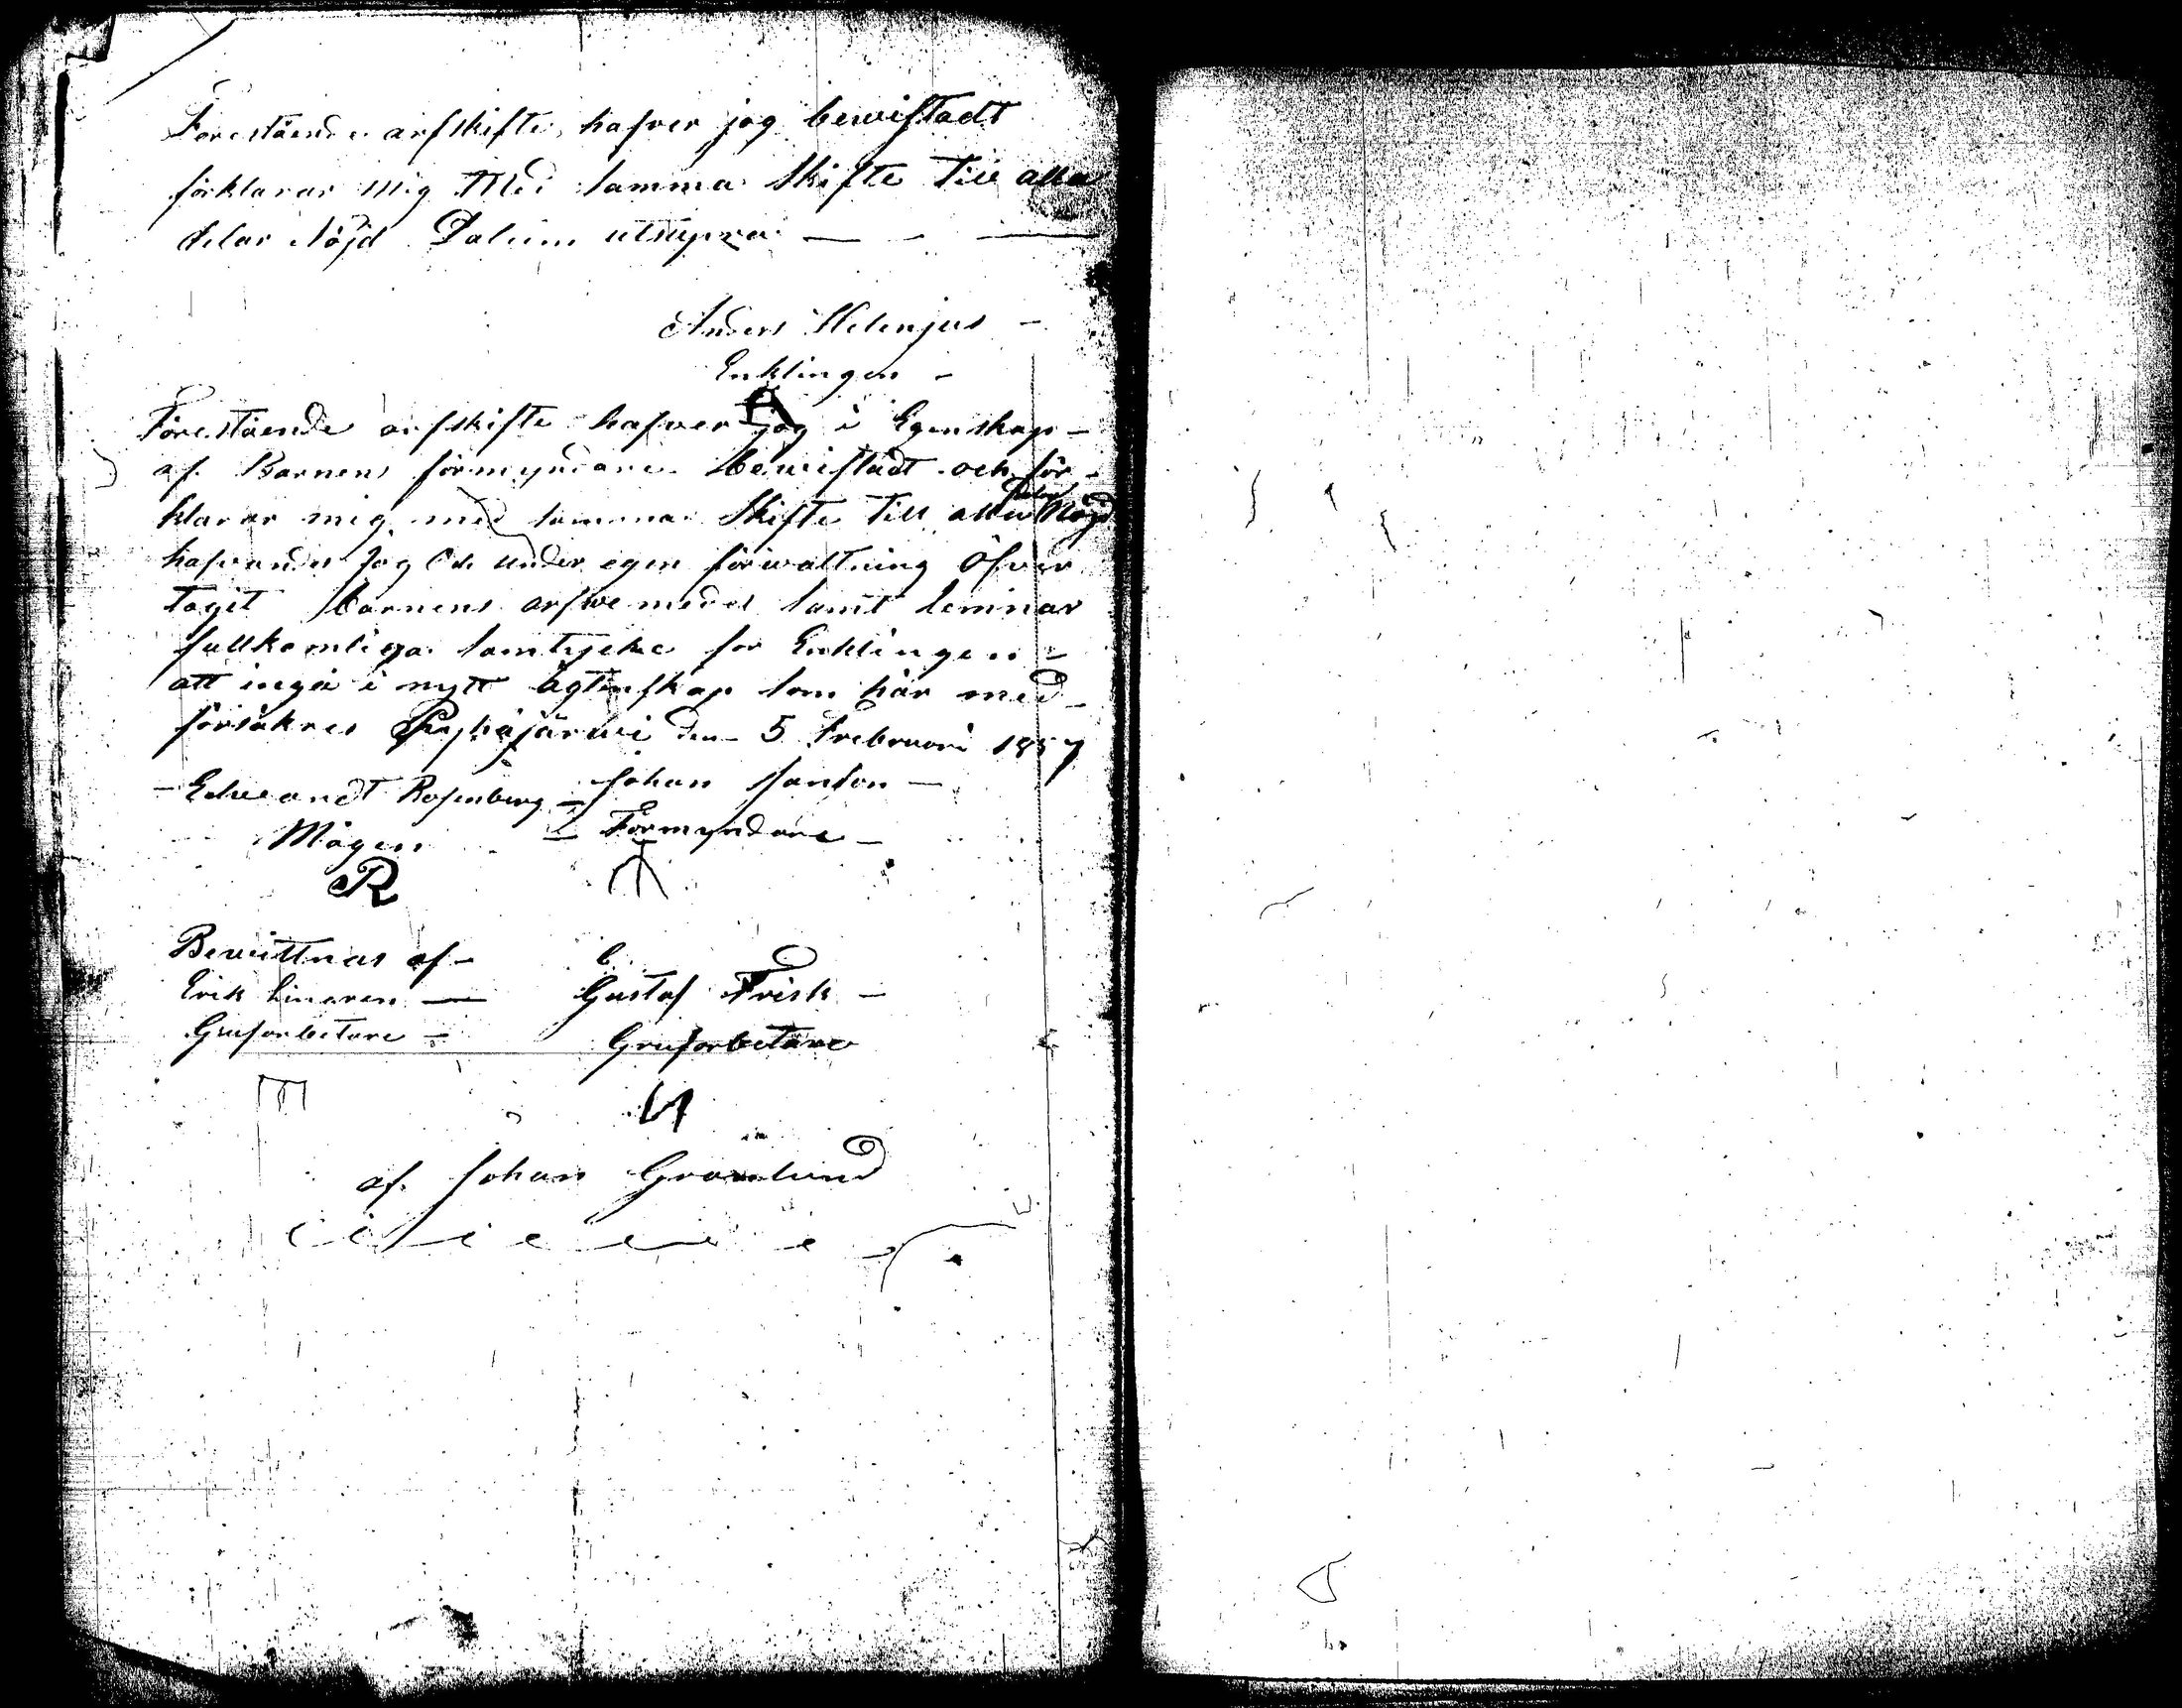 Förestående arfskifte hafver jag bewistadt
förklarar mig Med samma Skifte Till alla
delar Nöjd Datum utsupra
Anders Helenjus
Enklingen
Förestående arfskifte hafver jag i Egenskap
af Barnens förmyndare bewistadt och för
klarar mig med samma Skifte Till alla delar Nöjd
hafvandes Jag Och under egen förwaltning Öfver
Tagit barnens arfwemedel samt lemnar
fullkomliga samtycke for Enklingen
att ingå i nytt ägtenskap som här med
försäkres Pyhäjärwi den 5 Frebruari 1857
Edwandt Rosenberg Johan Janson
Mågen Förmyndare
R
Bewittnas af
Erik Gustaf Frisk
Grufarbetare Grufarbetare
af Johan Granlund